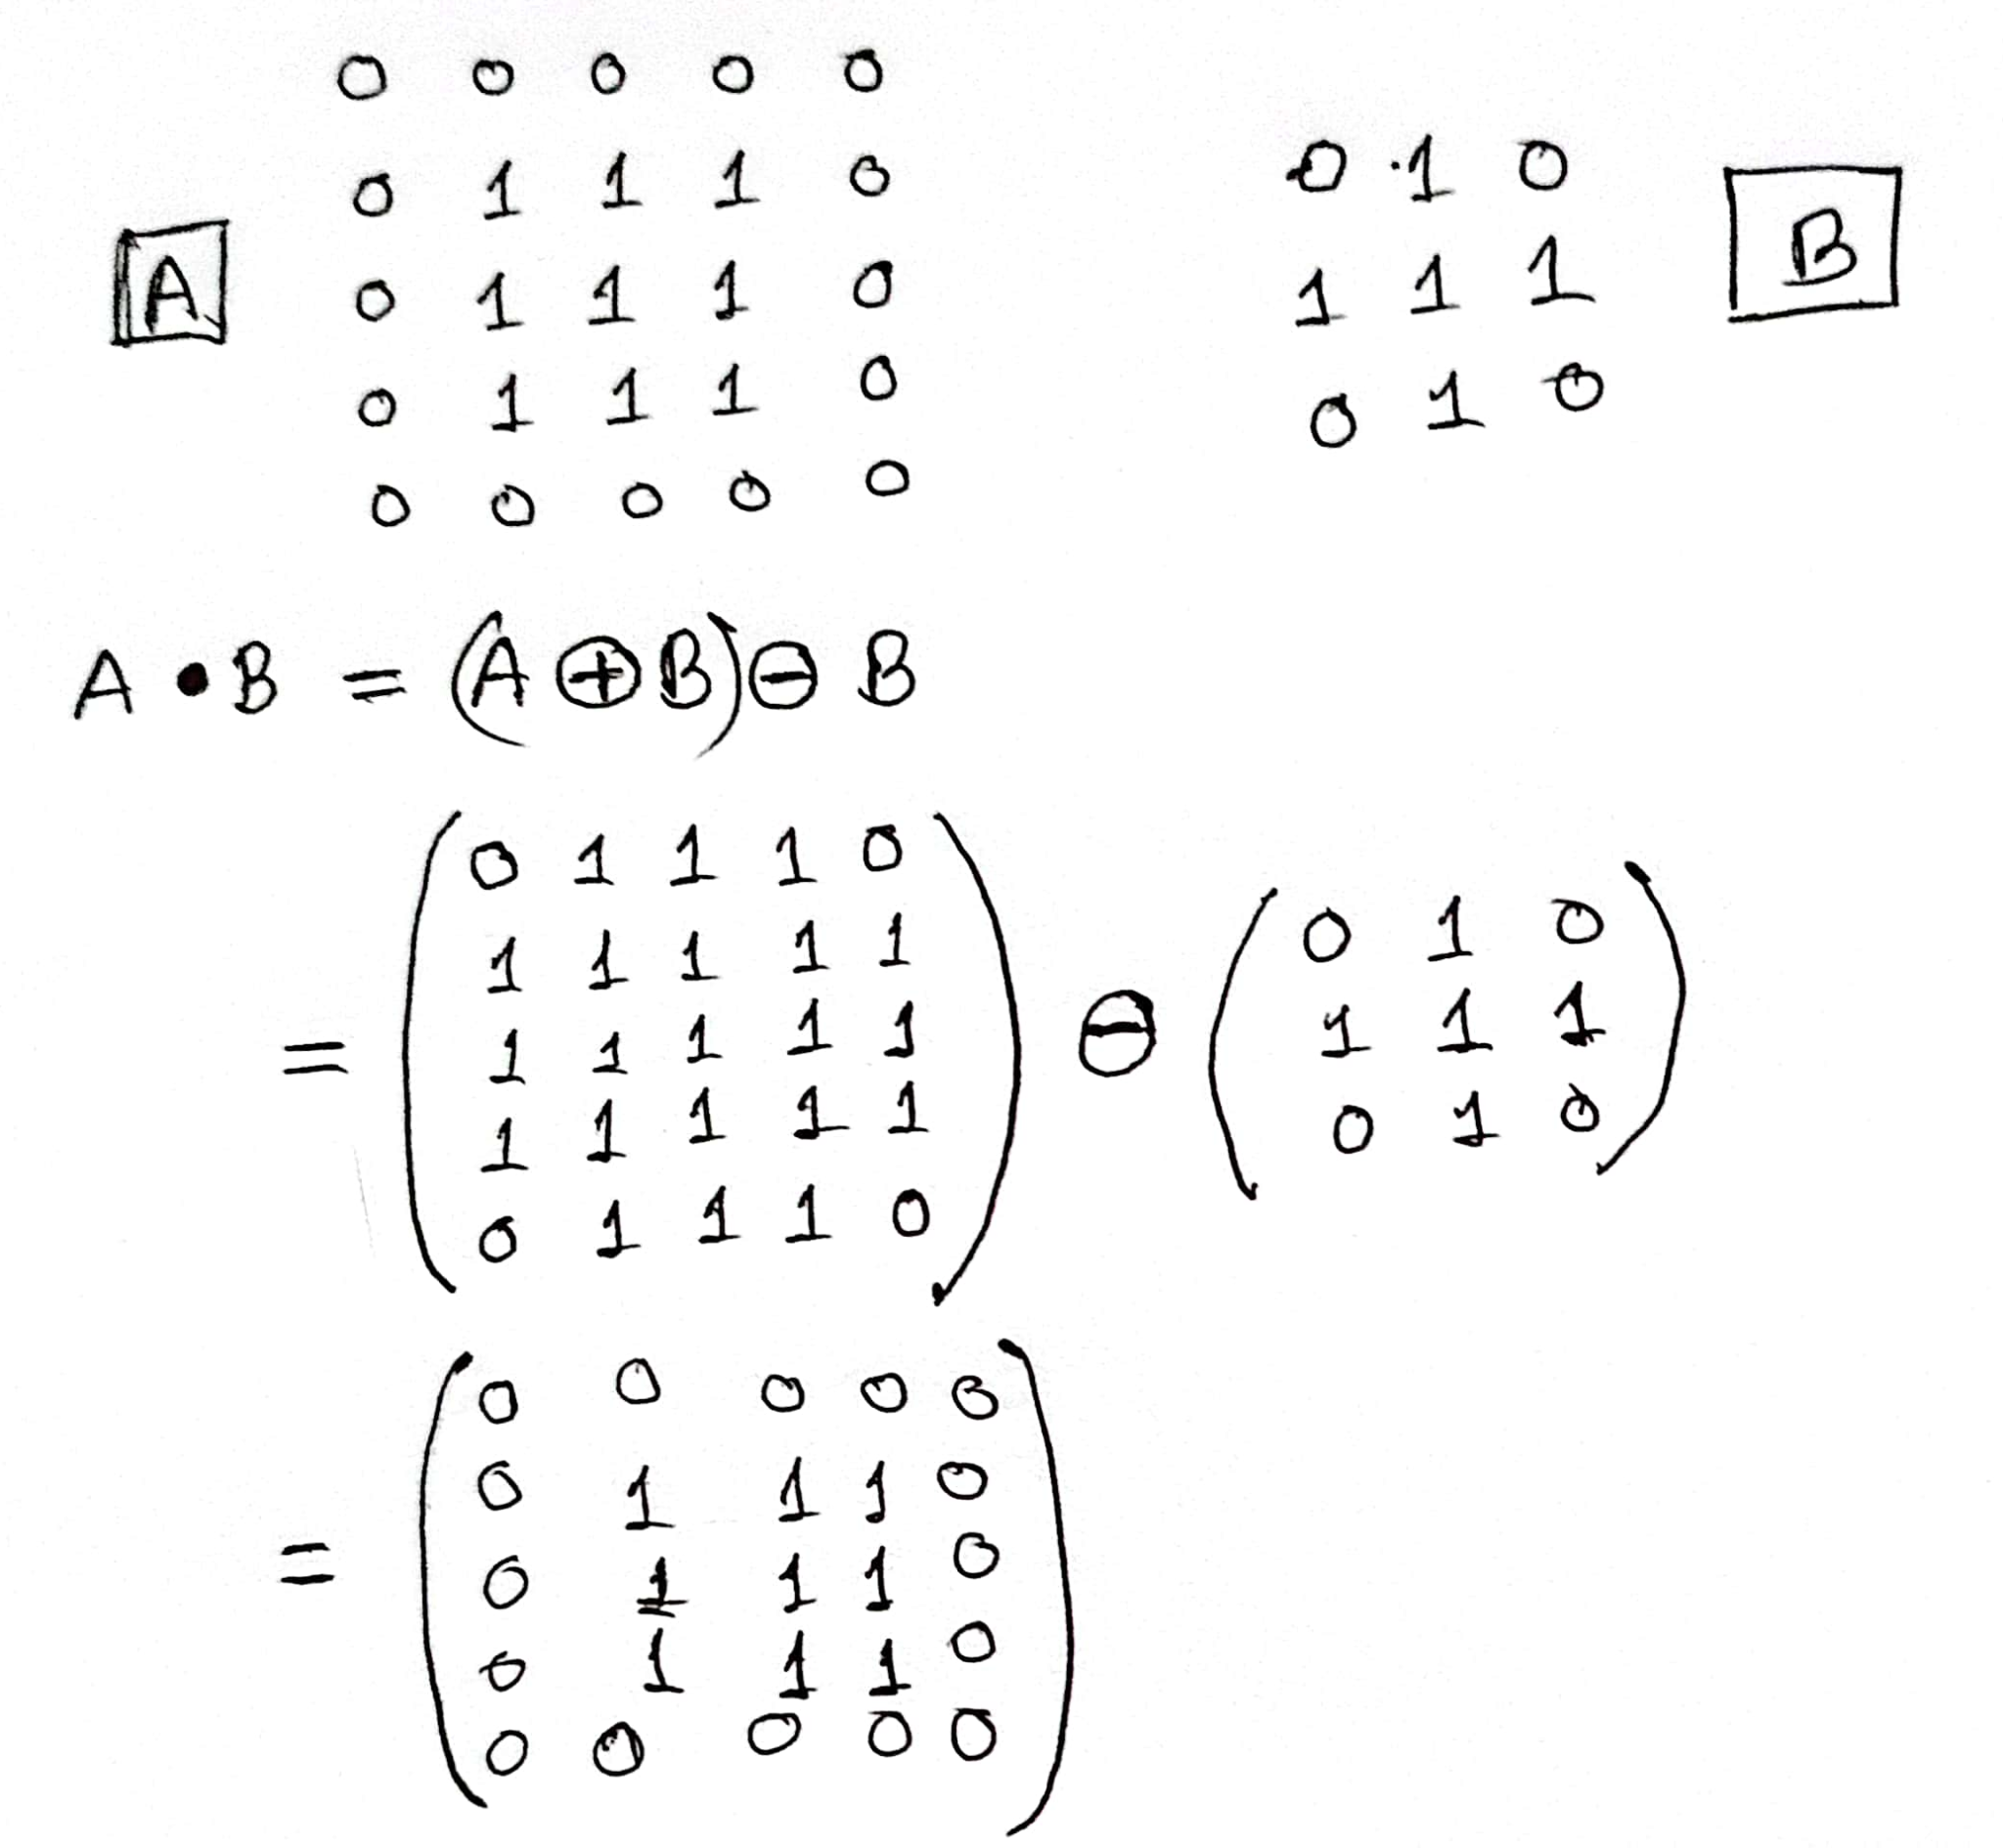 0 0 0 0 0
0 1 1 1 0
0 1 1 1 0
0 1 1 1 0
0 0 0 0 0
A
0 1 0
1 1 1
0 1 0
B
A • B = (A ⊕ B) ⊖ B
= ( 0 1 1 1 0
1 1 1 1 1
1 1 1 1 1
1 1 1 1 1
0 1 1 1 0 ) ⊖ ( 0 1 0
1 1 1
0 1 0 )
= ( 0 0 0 0 0
0 1 1 1 0
0 1 1 1 0
0 1 1 1 0
0 0 0 0 0 )